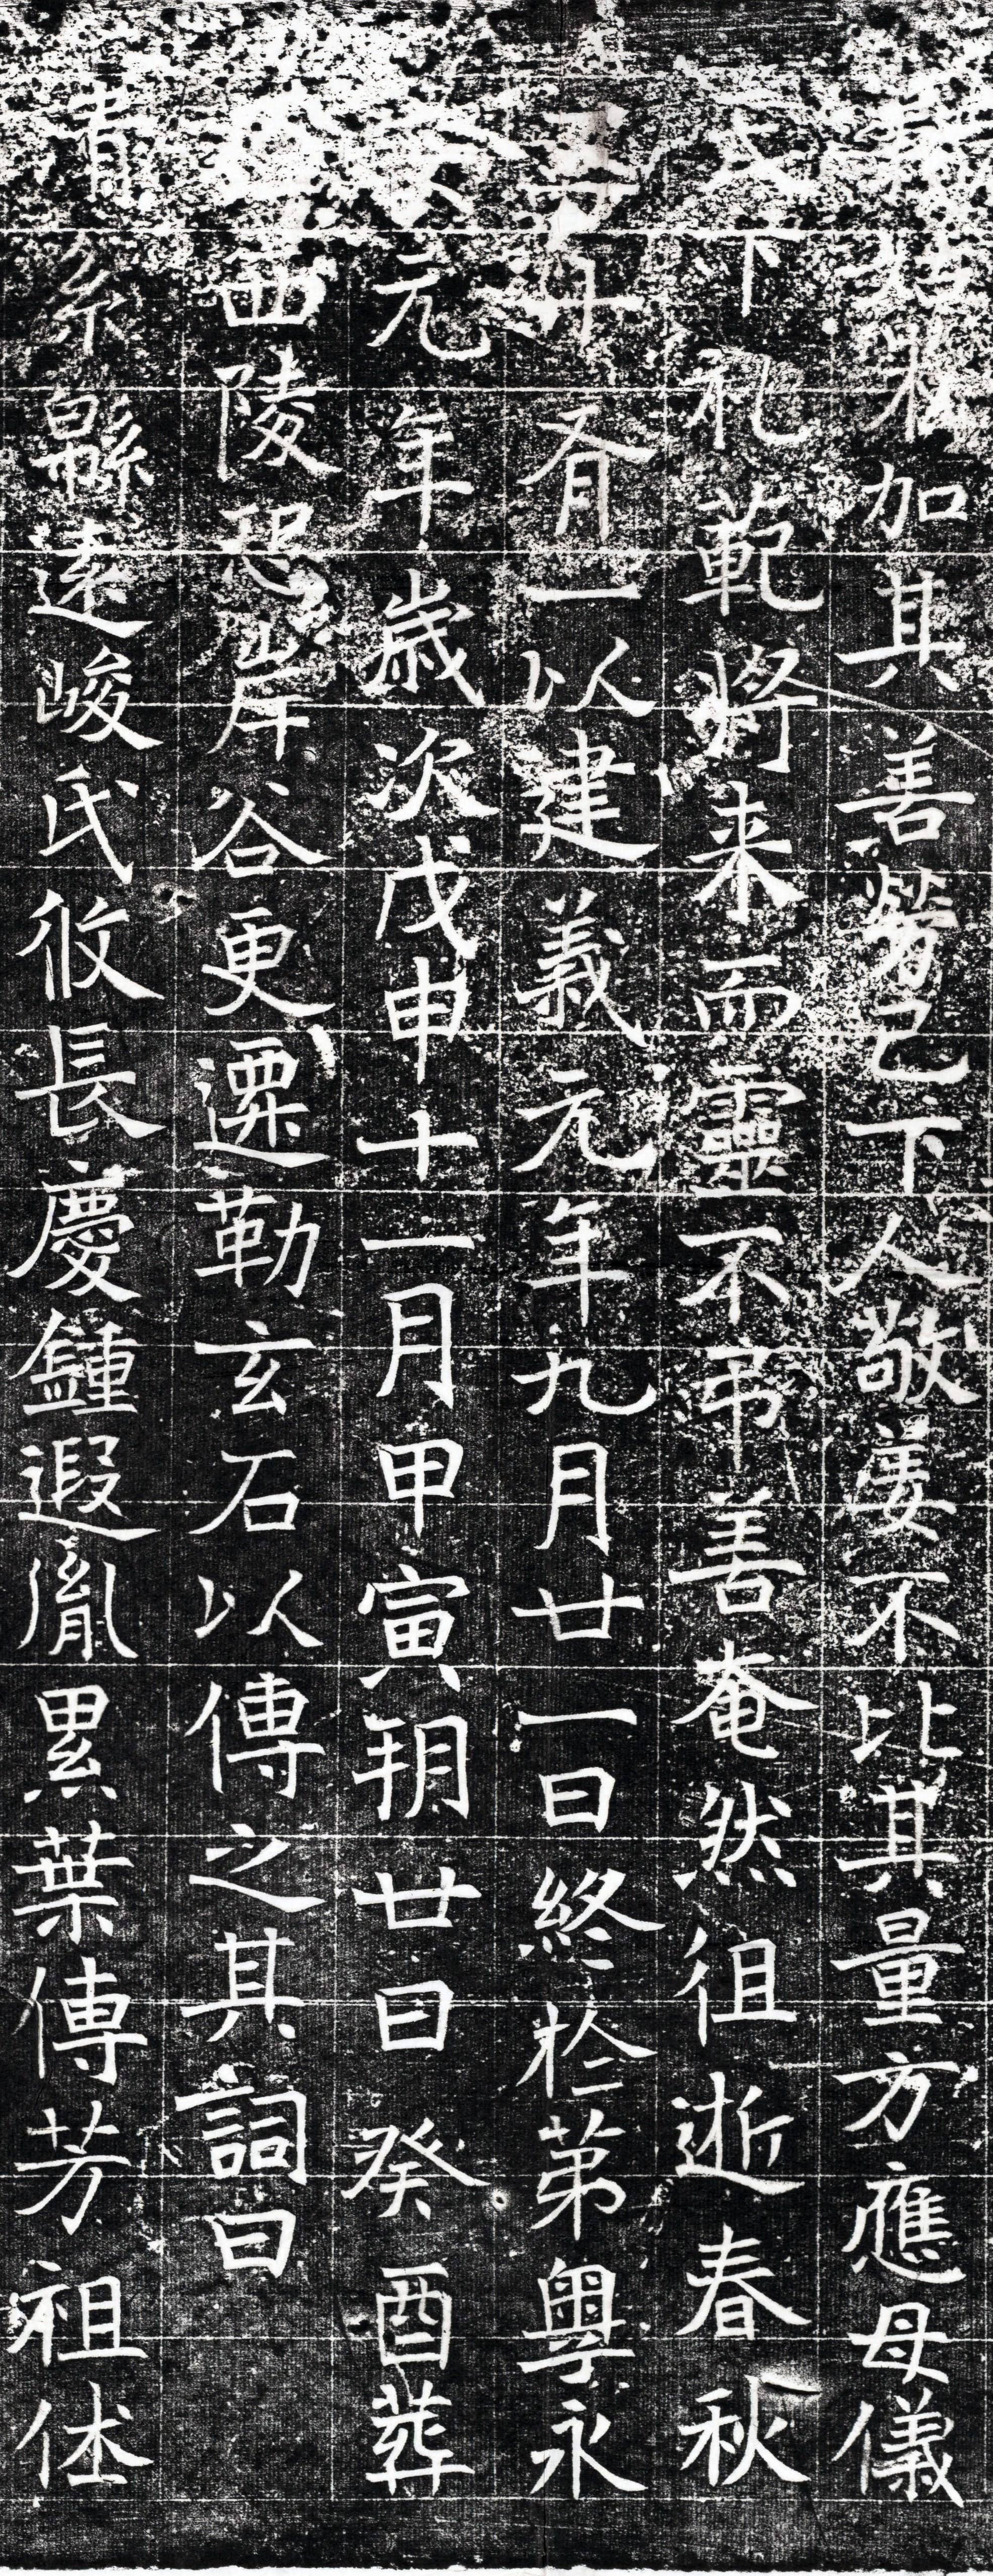 加其善勞己下人敬姜不比其量方應母儀
天下礼範將来而靈不弔善奄然徂逝春秋
卅有一以建義元年九月廿一日終於弟粤永
安元年歲次戊申十一月甲寅朔廿日癸酉葬
西陵恐岸谷更遷勒玄石以傳之其詞曰
清系緜遠峻氏攸長慶鍾遐胤累葉傳芳祖体